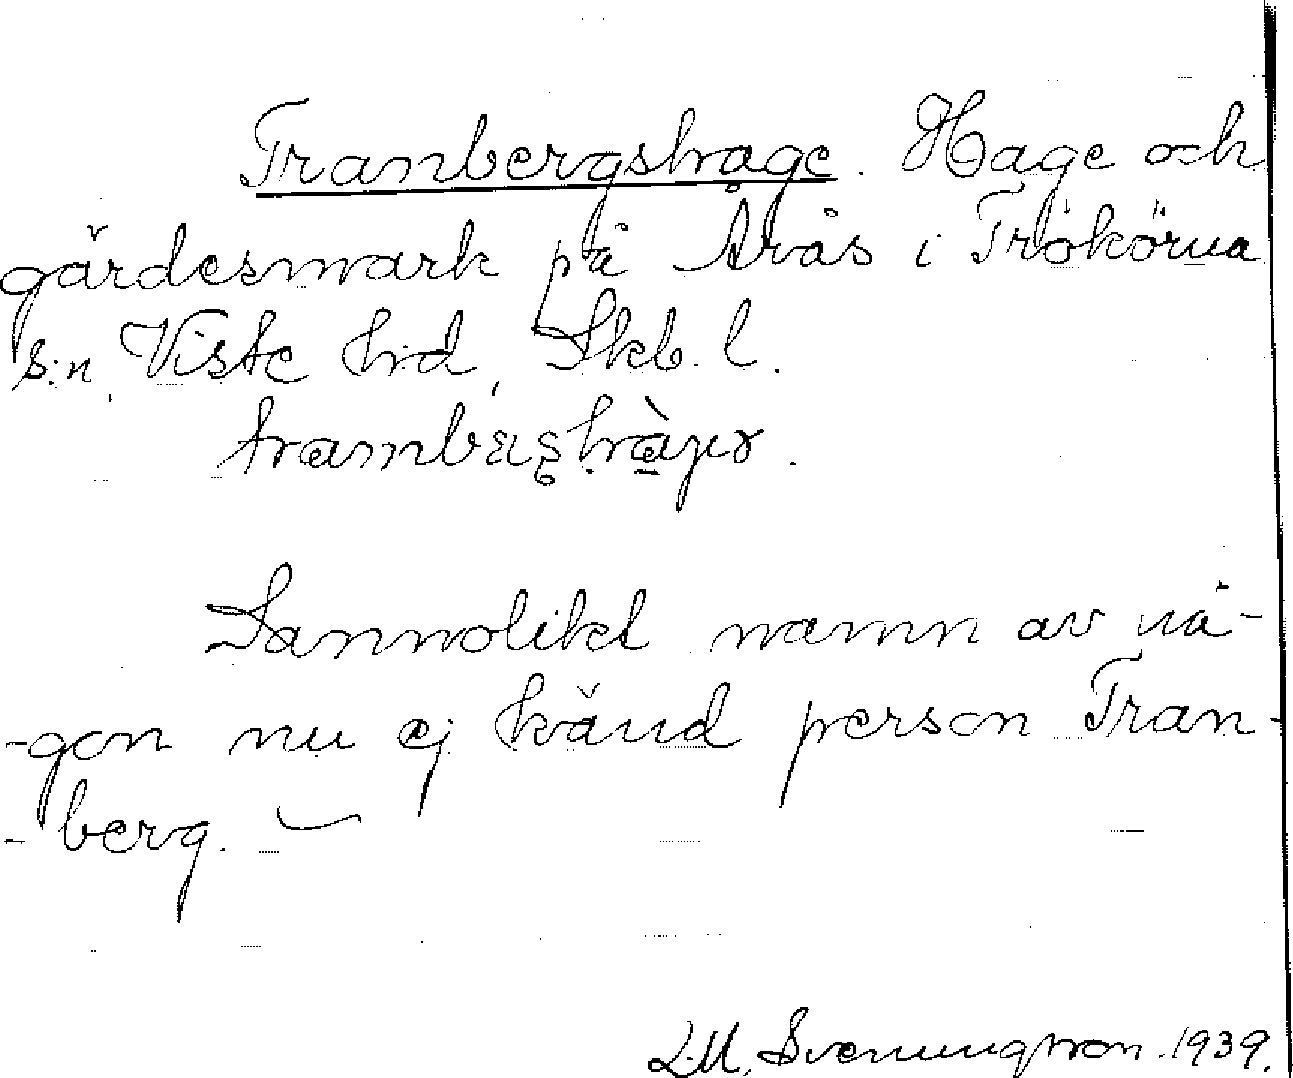 Tranbergshage. Hage och
gärdesmark på Årås i Trökörna
s:n, Viste hrd, Skb. l.
Sannolikt namn av nå-
-gon nu ej känd person Tran-
-berg.
L.M. Svenungsson. 1939.